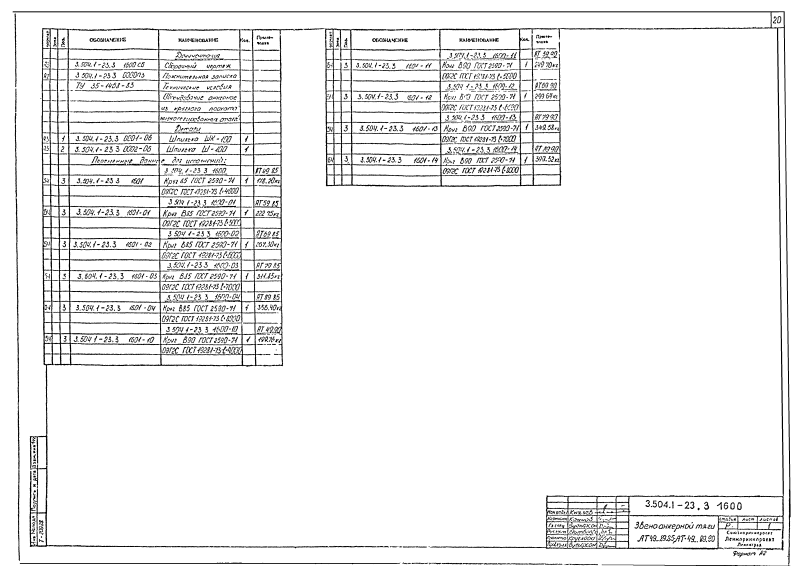 20
ОБОЗНАЧЕНИЕ НАИМЕНОВАНИЕ Кол. Приме-чание
Документация
3.504.1-23.3 1600 СБ Сборочный чертеж
3.504.1-23.3 0000ПЗ Пояснительная записка
ТУ 35-1468-85 Технические условия
Оборудование анкерное
из круглого проката
низколегированной стали
Детали
1 3.504.1-23.3 0001-06 Шпилька ШК-100 1
2 3.504.1-23.3 0002-06 Шпилька Ш-100 1
Переменные данные для исполнений:
3.504.1-23.3 1600 АТ 49.85
3 3.504.1-23.3 1601 Круг 85 ГОСТ 2590-71 1 178.20кг
09Г2С ГОСТ 19281-73 ℓ=4000
3.504.1-23.3 1600-01 АТ 59.85
3 3.504.1-23.3 1601-01 Круг В85 ГОСТ 2590-71 1 222.75кг
09Г2С ГОСТ 19281-73 ℓ=5000
3.504.1-23.3 1600-02 АТ 69.85
3 3.504.1-23.3 1601-02 Круг В85 ГОСТ 2590-71 1 267.30кг
09Г2С ГОСТ 19281-73 ℓ=6000
3.504.1-23.3 1600-03 АТ 79.85
3 3.504.1-23.3 1601-03 Круг В85 ГОСТ 2590-71 1 311.85кг
09Г2С ГОСТ 19281-73 ℓ=7000
3.504.1-23.3 1600-04 АТ 89.85
3 3.504.1-23.3 1601-04 Круг В85 ГОСТ 2590-71 1 356.40кг
09Г2С ГОСТ 19281-73 ℓ=8000
3.504.1-23.3 1600-10 АТ 49.90
3 3.504.1-23.3 1601-10 Круг В90 ГОСТ 2590-71 1 199.76кг
09Г2С ГОСТ 19281-73 ℓ=4000
ОБОЗНАЧЕНИЕ НАИМЕНОВАНИЕ Кол. Приме-чание
3.504.1-23.3 1600-11 АТ 59.90
3 3.504.1-23.3 1601-11 Круг В90 ГОСТ 2590-71 1 249.70кг
09Г2С ГОСТ 19281-73 ℓ=5000
3.504.1-23.3 1600-12 АТ 69.90
3 3.504.1-23.3 1601-12 Круг В90 ГОСТ 2590-71 1 299.64кг
09Г2С ГОСТ 19281-73 ℓ=6000
3.504.1-23.3 1600-13 АТ 79.90
3 3.504.1-23.3 1601-13 Круг В90 ГОСТ 2590-71 1 349.58кг
09Г2С ГОСТ 19281-73 ℓ=7000
3.504.1-23.3 1600-14 АТ 89.90
3 3.504.1-23.3 1601-14 Круг В90 ГОСТ 2590-71 1 399.52кг
09Г2С ГОСТ 19281-73 ℓ=8000
3.504.1-23.3 1600
Звено анкерной тяги
АТ 49...89.85, АТ-49...89.90
Стадия Лист Листов
Р 1
Ленморниипроект
Ленинград
Формат А2